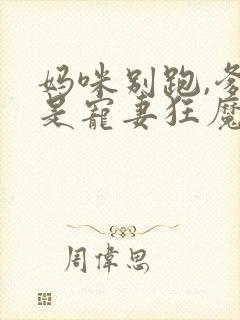 妈咪别跑,爹
是寵妻狂魔
周偉思